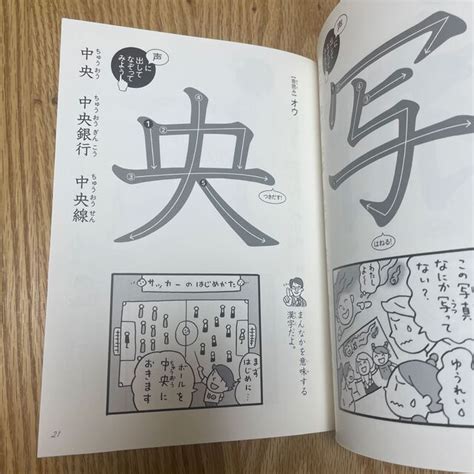 【音読み】オウ
央
① ② ③ ④ ⑤
つきだす!
声に
出して
なぞって
みよう!
ちゅうおう
中央
ちゅうおうぎんこう
中央銀行
ちゅうおうせん
中央線
まんなかを意味する
漢字だよ。
サッカーのはじめかた
まず
はじめに…
ボールを
ちゅうおう
中央に
おきます
21
写
はねる!
この写真
なにか写って
ない?
ゆうれい